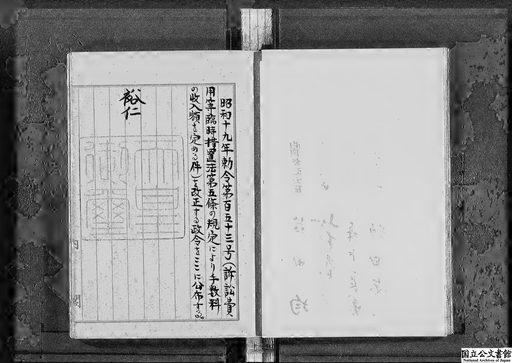 昭和十九年勅令第百五十三号(訴訟費
用等臨時措置法第五條の規定により手数料
の收入額を定める件)を改正する政令をここに公布する。
裕仁
天皇
御璽
国立公文書館
National Archives of Japan